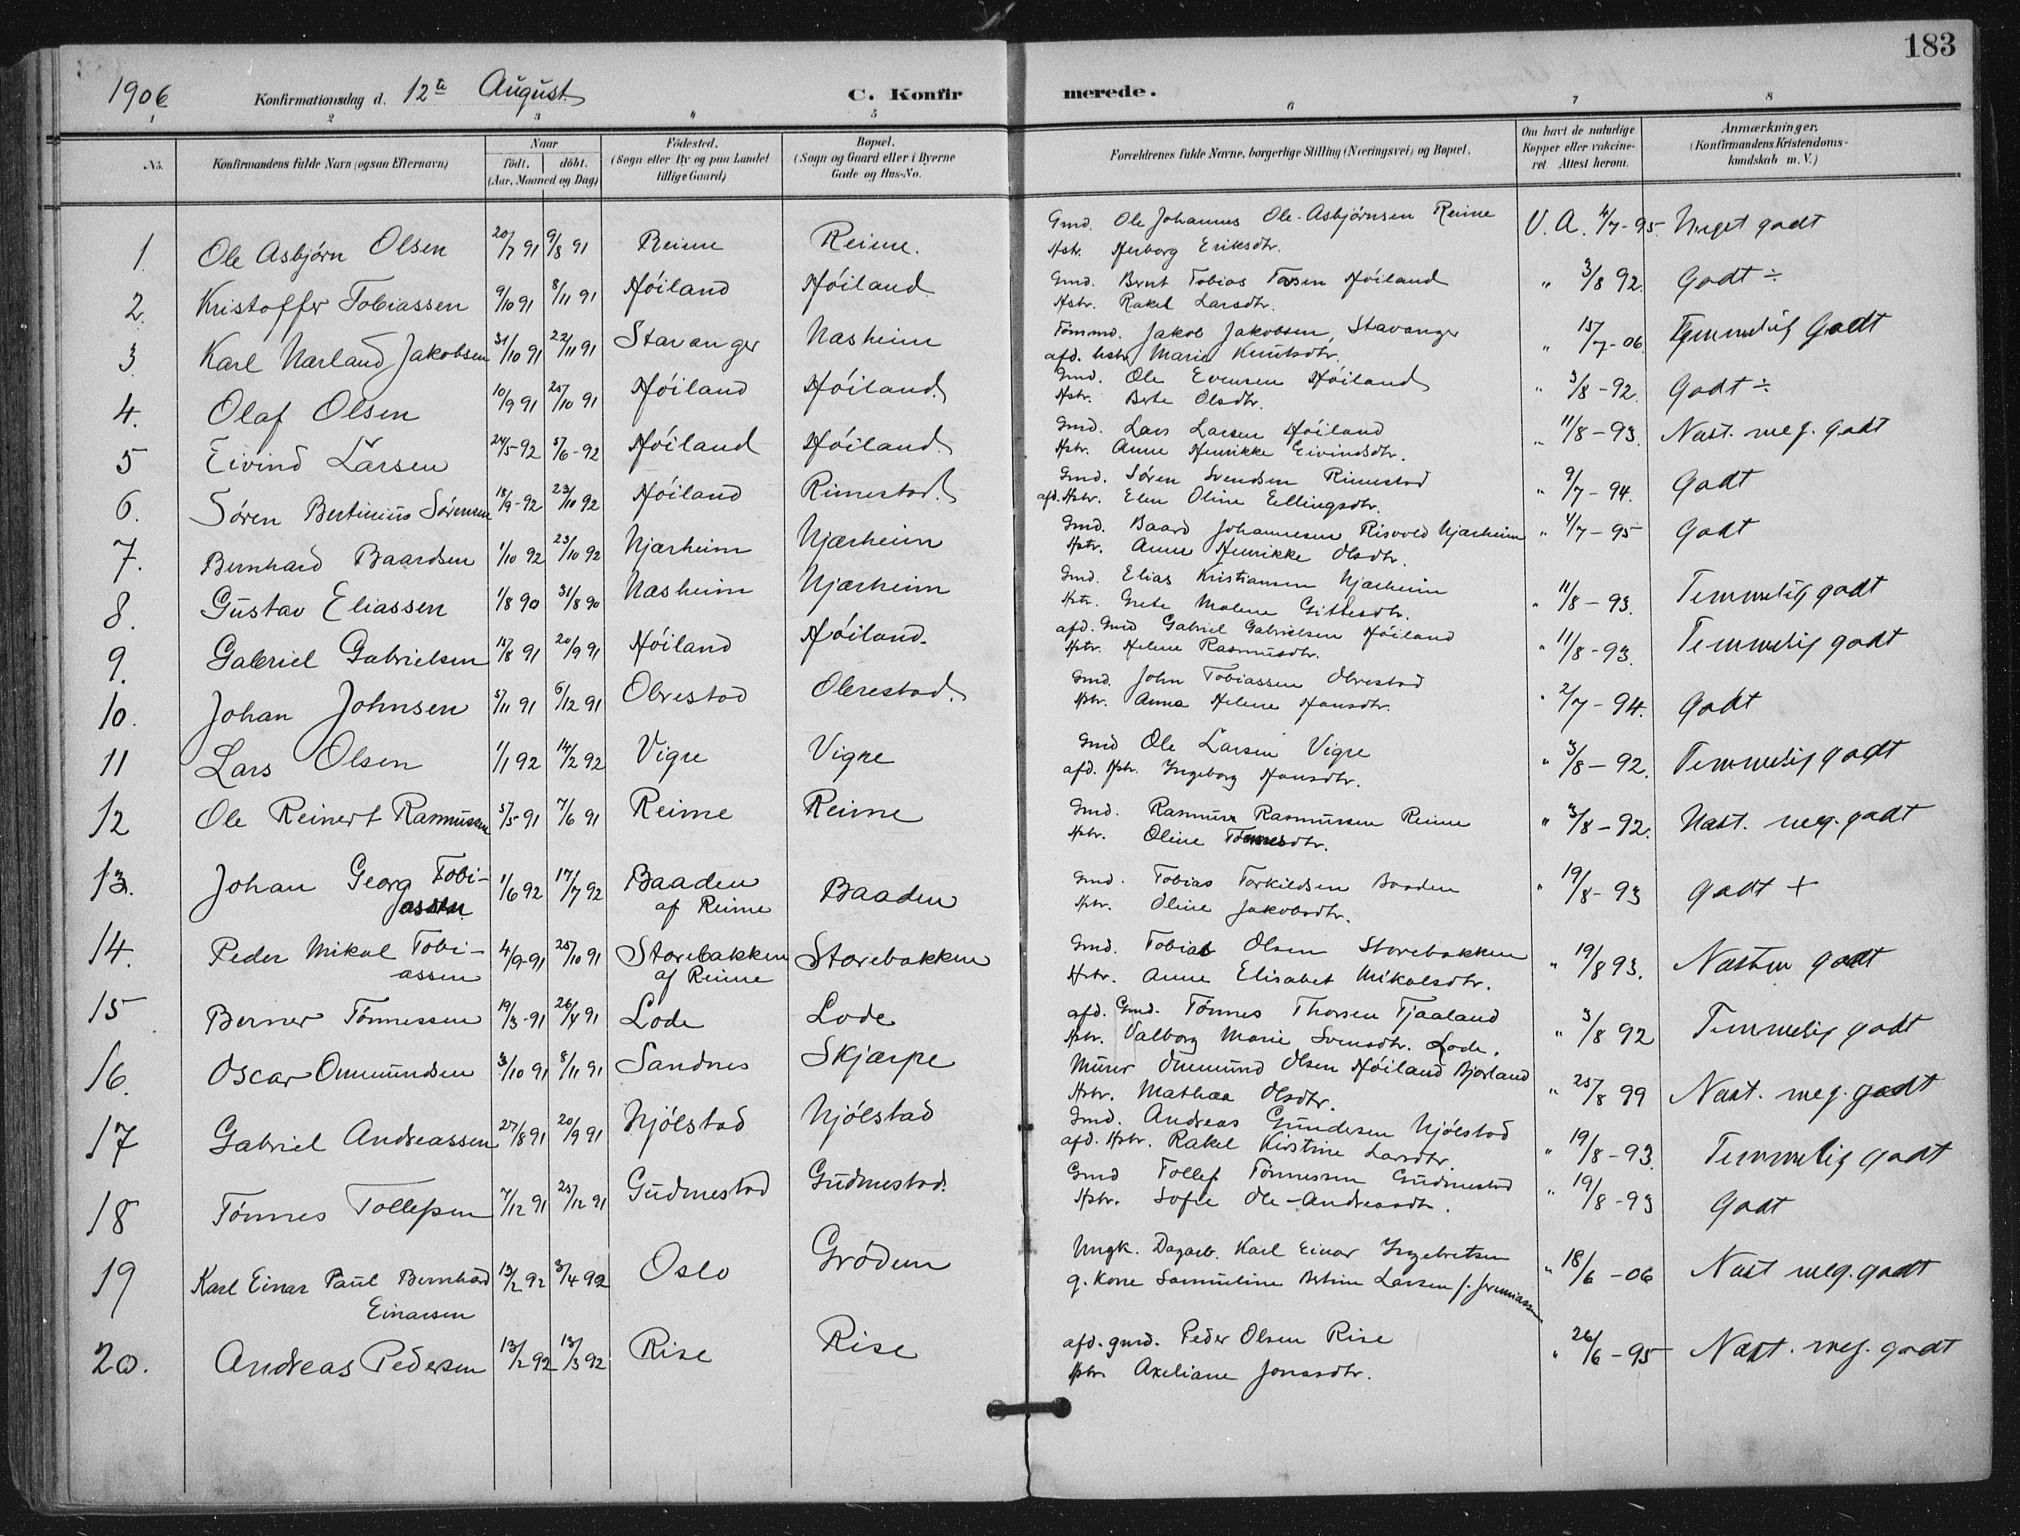 183
1906 Konfirmationsdag d. 12te August C. Konfirmerede.
1 2 3 4 5 6 7 8
No. Konfirmandens fulde Navn (ogsaa Efternavn) Naar födt. döbt. (Aar, Maaned og Dag) Födested. (Sogn eller By og paa Landet tillige Gaard) Bopæl. (Sogn og Gaard eller i Byerne Gade og Hus-No. Forældrenes fulde Navne, borgerlige Stilling (Næringsvei) og Bopæl. Om havt de naturlige Kopper eller vakcineret Attest herom. Anmærkninger. (Konfirmandens Kristendomskundskab m. V.)
1. Ole Asbjørn Olsen 20/7 91 9/8 91 Reime Reime. Gmd. Ole Johannes Ole-Asbjørnsen Reime V. A. 4/7-95. Meget godt
Hstr. Herborg Eriksdtr.
2. Kristoffer Tobiassen 9/10 91 8/11 91 Høiland Høiland Gmd. Bernt Tobias Høiland " 3/8 92. Godt ÷
Hstr. Rakel Larsdtr.
3 Karl Narland Jakobsen 31/10 91 22/11 91 Stavanger Nasheim Tømmd. Jakob Jakobsen, Stavanger " 15/7-06 Temmelig Godt
afd. hstr. Marie Knutsdtr.
4. Olaf Olsen 10/9 91 25/10 91 Høiland Høiland. Gmd. Ole Evensen Høiland " 3/8-92. Godt ÷
Hstr. Berte Olsdtr.
5 Eivind Larsen 24/5-92 5/6-92 Høiland Høiland. Gmd. Lars Larsen Høiland " 11/8-93. Næst. meg. godt
Hstr. Anne Henrikke Eivindsdtr.
6. Søren Bertinius Sørensen 18/9-92 23/10 92 Høiland Rimestad. Gmd. Søren Svendsen Rimestad " 9/7-94. Godt
afd. Hstr. Elen Oline Ellingsdtr.
7. Bernhard Baardsen 1/10 92 23/10 92 Njærheim Njærheim Gmd. Baard Johannesen Risvold Njærheim " 4/7-95 Godt
Hstr. Anne Henrikke Olsdtr.
8. Gustav Eliassen 1/8 90 31/8 90 Nasheim Njærheim Gmd. Elias Kristiansen Njærheim " 11/8-93. Temmelig godt
Hstr. Grete Malene Gitlesdtr.
9. Gabriel Gabrielsen 15/8 91 20/9 91 Høiland Høiland. afd. Gmd Gabriel Gabrielsen Høiland " 11/8-93. Temmelig godt
Hstr. Helene Rasmusdtr.
10. Johan Johnsen 5/11 91 6/12 91 Obrestad Obrestad. Gmd. John Tobiassen Obrestad " 2/7-94. Godt
Hstr. Anna Helene Hansdtr.
11 Lars Olsen 1/1 92 14/2 92 Vigre Vigre Gmd Ole Larsen Vigre " 3/8-92. Temmelig godt
afd. Hstr. Ingeborg Hansdtr.
12 Ole Reinert Rasmussen 5/5-91 7/6 91 Reime Reime Gmd. Rasmus Rasmussen Reime " 3/8-92. Næst. meg. godt
Hstr. Oline Tønnesdtr.
13. Johan Georg Tobi- 1/6 92 17/7 92 Baaden Baaden Gmd. Tobias Torkildsen Baaden " 19/8-93 godt +
assen af Reime Hstr. Oline Jakobsdtr.
14. Peder Mikal Tobi- 4/9-91 25/10 91 Storebakken Storebakken Gmd. Tobias Olsen Storebakken " 19/8 93. Næsten godt
assen af Reime Hstr. Anne Elisabet Mikalsdtr.
15 Berner Tønnessen 19/3-91 26/4 91 Lode Lode afd. Gmd. Tønnes Thorsen Tjaaland " 3/8 92 Temmelig godt
Hstr. Valborg Marie Svensdtr. Lode.
16. Oscar Ommundsen 3/10 91 8/11 91 Sandnes Skjærpe Murer Ommund Olsen Høiland Bjorland " 25/8 99 Næst. meg. godt
Hstr. Mathea Olsdtr.
17 Gabriel Andreassen 27/8 91 20/9 91 Njølstad Njølstad Gmd. Andreas Gundersen Njølstad " 19/8-93. Temmelig godt
afd. Hstr. Rakel Kirstine Larsdtr.
18 Tønnes Tollefsen 7/12 91 25/12 91 Gudmestad Gudmestad. Gmd Tollef Tønnessen Gudmestad " 19/8-93 Godt
Hstr. Sofie Ole-Andreasdtr.
19 Karl Einar Paul Bernhard 13/2 92 3/4 92 Oslo Grødem Ungk. Dagarb. Karl Einar Ingebretsen " 18/6-06 Næst meg. godt
Einarsen g. Kone Samueline Bertine Larsen f. Jeremiassen
20. Andreas Pedersen 13/2 92 13/3 92 Rise Rise afd. gmd. Peder Olsen Rise " 26/6-95 Næst. meg. godt
Hstr. Axeliane Jonasdtr.